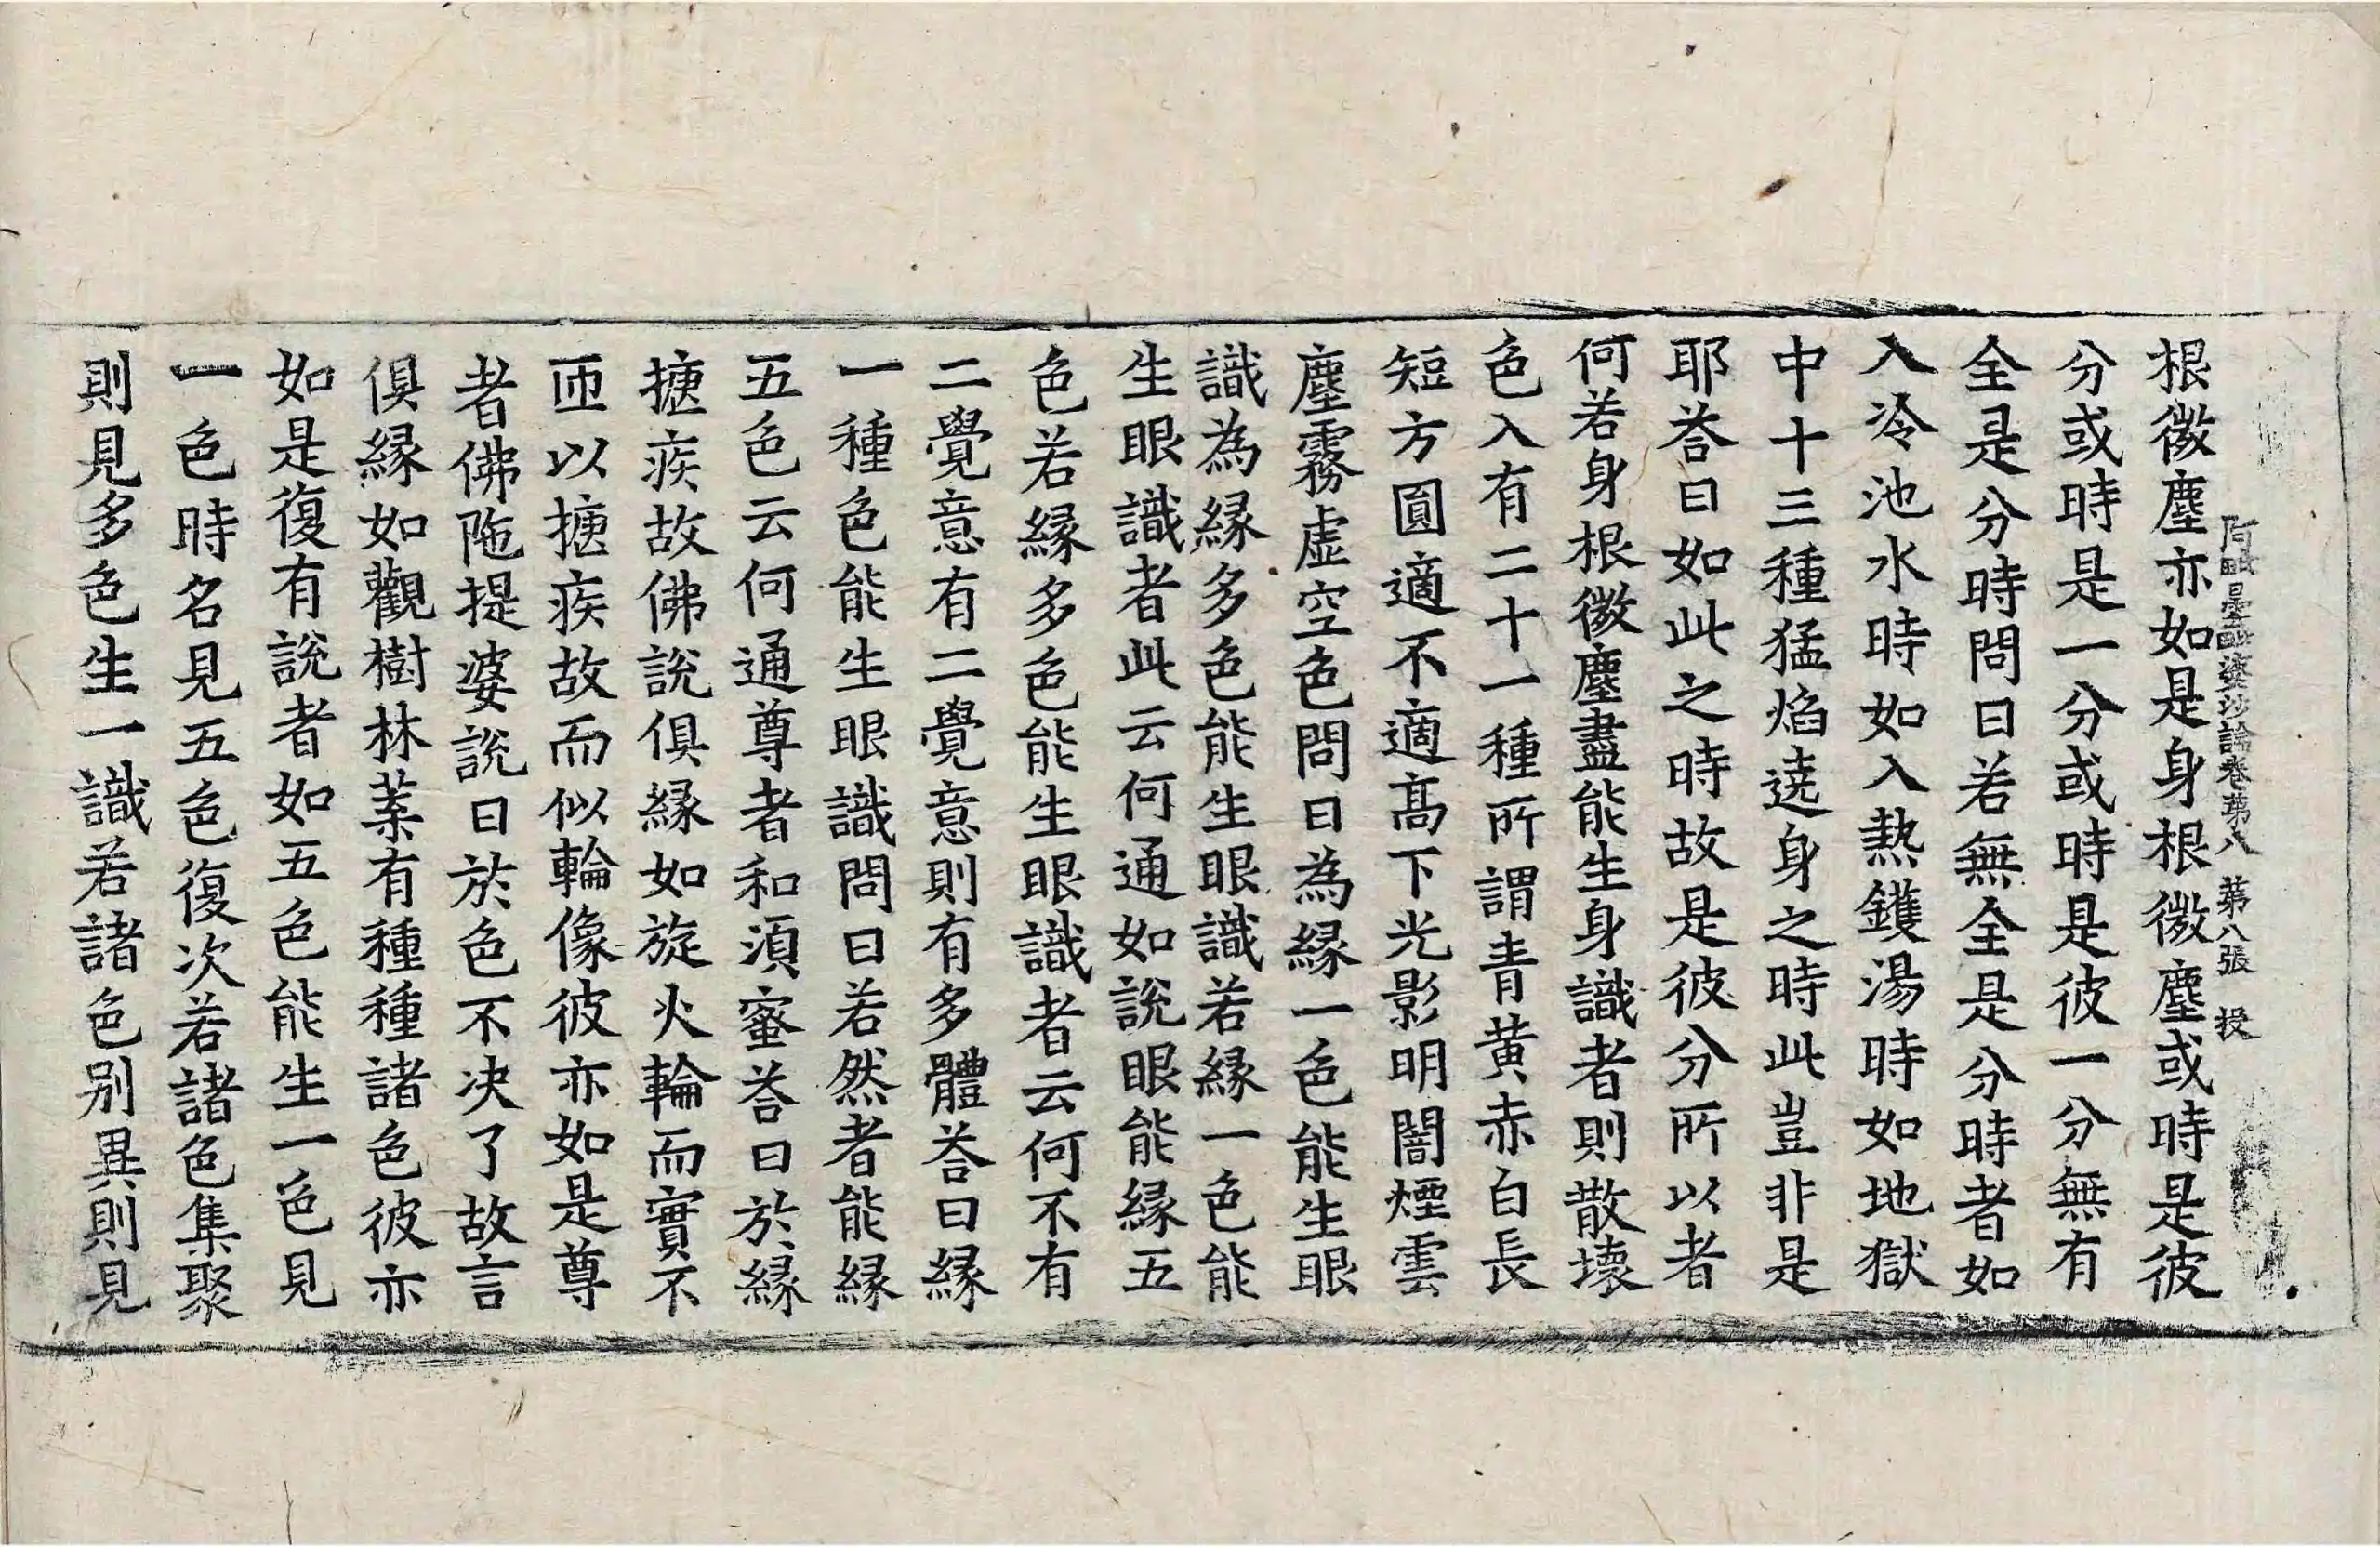 阿毗曇毗婆沙論卷第八 第八張 投
根微塵亦如是身根微塵或時是彼
分或時是一分或時是彼一分無有
全是分時問曰若無全是分時者如
入冷池水時如入熱鑊湯時如地獄
中十三種猛焰遶身之時此豈非是
耶荅曰如此之時故是彼分所以者
何若身根微塵盡能生身識者則散壞
色入有二十一種所謂青黄赤白長
短方圓適不適髙下光影明闇煙雲
塵霧虛空色問曰為緣一色能生眼
識為緣多色能生眼識若緣一色能
生眼識者此云何通如說眼能緣五
色若緣多色能生眼識者云何不有
二覺意有二覺意則有多體荅曰緣
一種色能生眼識問曰若然者能緣
五色云何通尊者和須蜜荅曰於緣
㨍疾故佛說俱緣如旋火輪而實不
匝以㨍疾故而似輪像彼亦如是尊
者佛陁提婆說曰於色不决了故言
俱緣如觀樹林葉有種種諸色彼亦
如是復有說者如五色能生一色見
一色時名見五色復次若諸色集聚
則見多色生一識若諸色别異則見